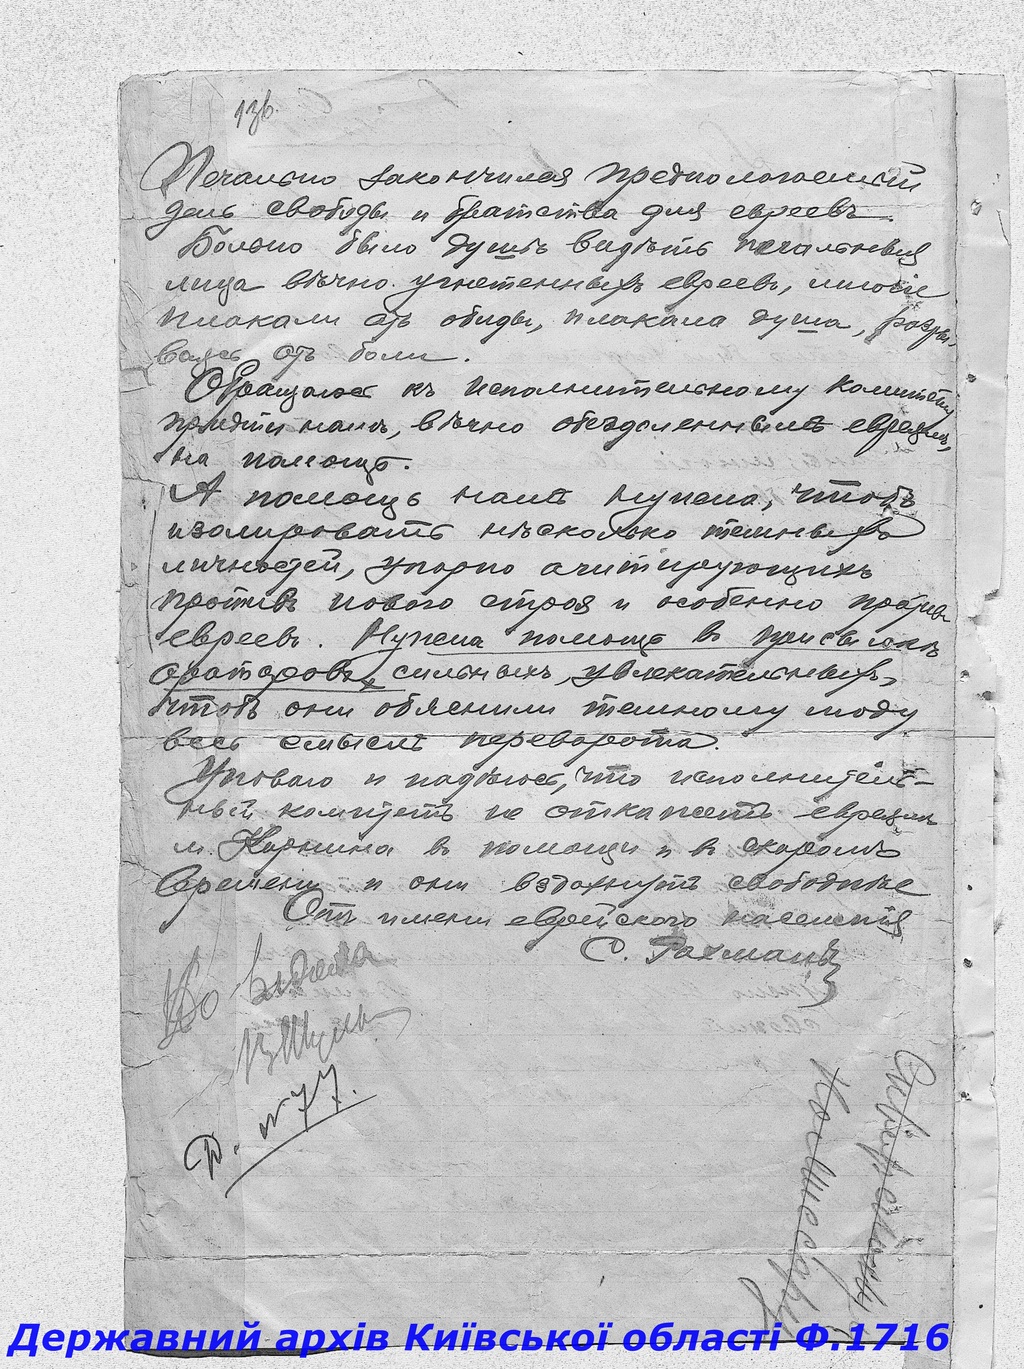 13б.
Печально закончился предположенный
день свободы и братства для евреевъ.
Больно было душѣ видѣть печальныя
лица вѣчно угнетенныхъ евреевъ, многіе
плакали отъ обиды, плакала душа, разры-
ваясь отъ боли.
Обращаюсь къ исполнительному комитету
придти намъ, вѣчно обездоленнымъ евреямъ,
на помощь.
А помощь намъ нужна, чтобъ
изолировать нѣсколько темныхъ
личностей, упорно агитирующихъ
противъ новаго строя и особенно противъ
евреевъ. Нужна помощь въ присылкѣ
ораторовъ, сильныхъ, увлекательныхъ,
чтобъ они обяснили темному люду
весь смыслъ переворота.
Уповаю и надѣюсь, что исполнитель-
ный комитетъ не откажетъ евреямъ
м. Корнина въ помощи и въ скоромъ
времени и они вздохнутъ свободнѣе
Отъ имени еврейского населенія
С. Рахманъ
Д. № 77.
Комиссару
Державний архів Київської області Ф.1716